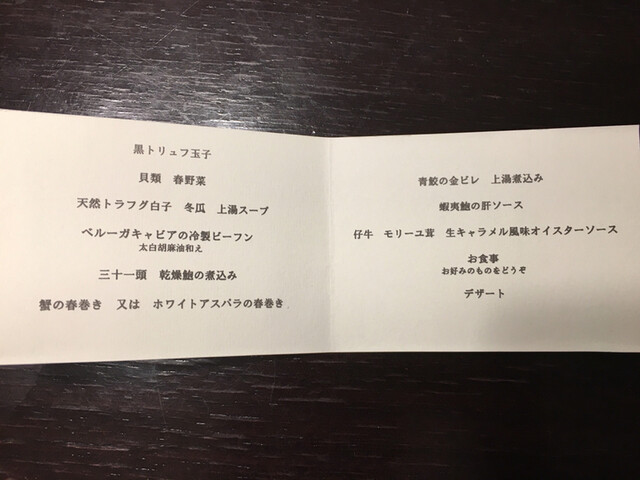 黒トリュフ玉子
貝類　春野菜
天然トラフグ白子　冬瓜　上湯スープ
ベルーガキャビアの冷製ビーフン
太白胡麻油和え
三十一頭　乾燥鮑の煮込み
蟹の春巻き　又は　ホワイトアスパラの春巻き
青鮫の金ビレ　上湯煮込み
蝦夷鮑の肝ソース
仔牛　モリーユ茸　生キャラメル風味オイスターソース
お食事
お好みのものをどうぞ
デザート